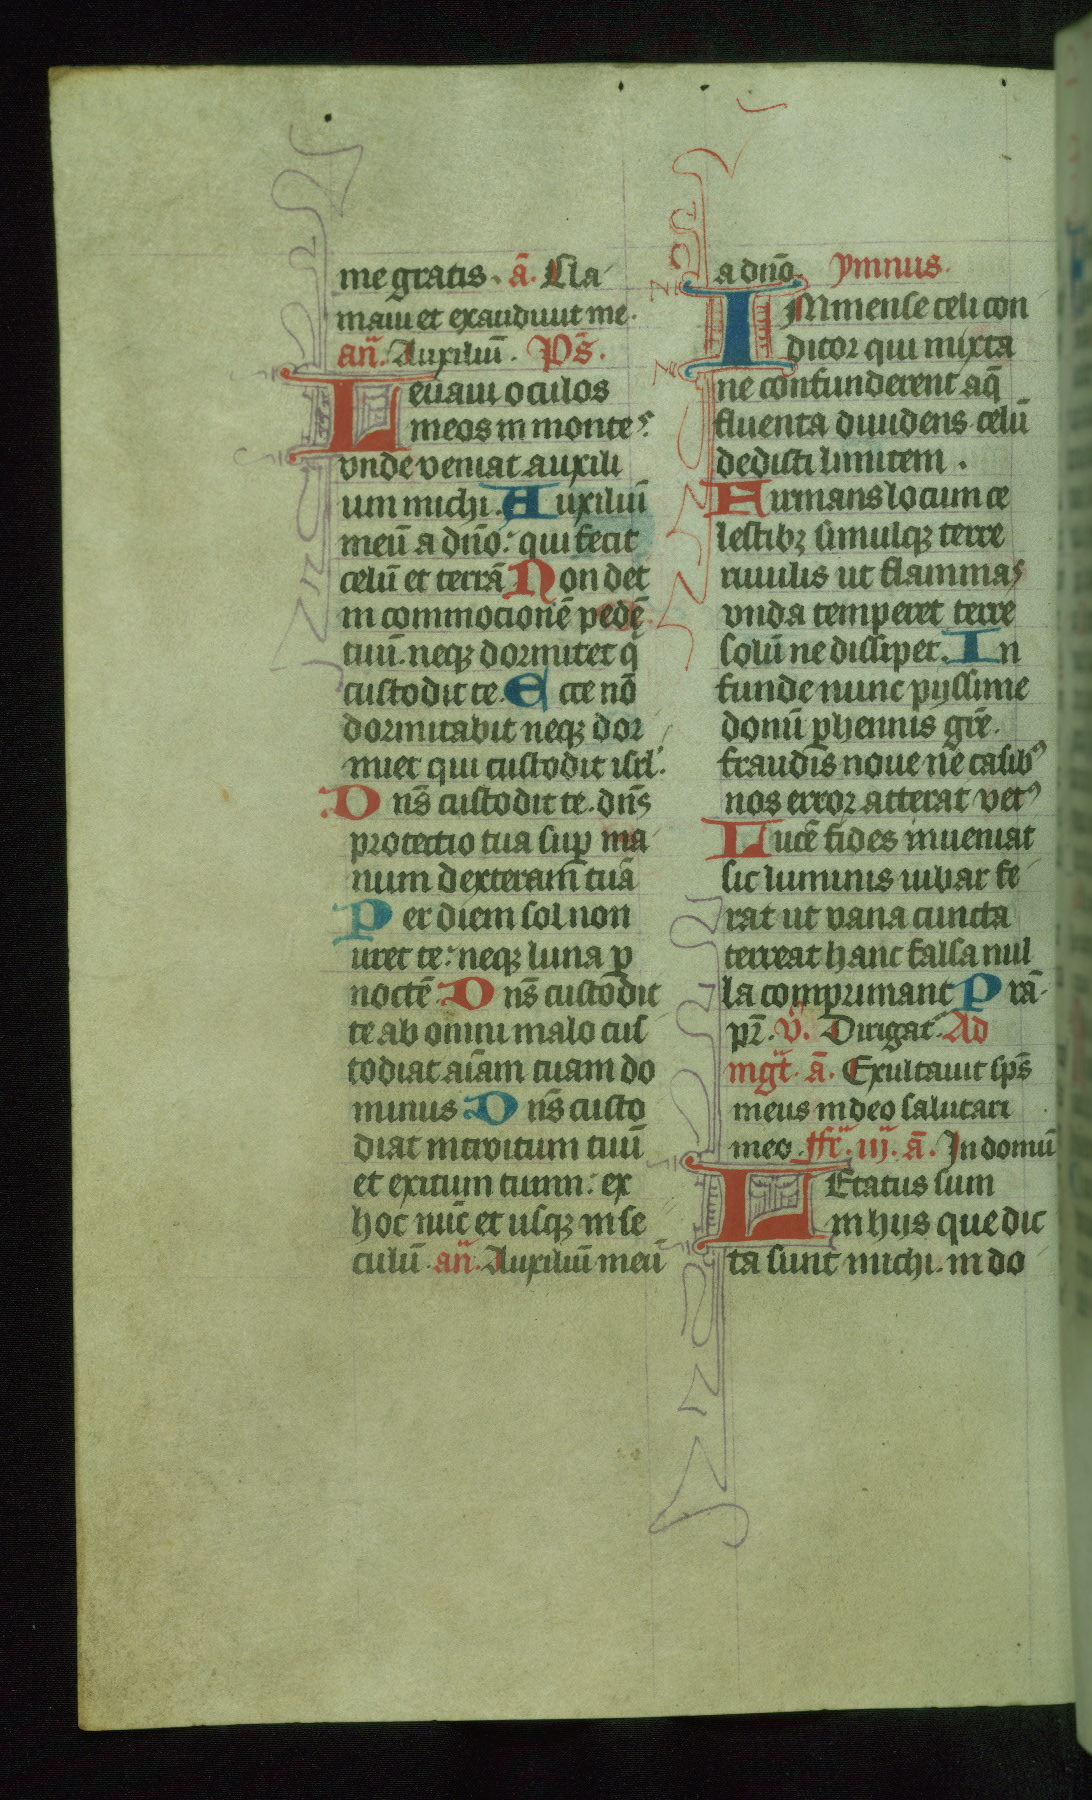 me gratis. ā. Cla
maui et exaudiuit me.
añ. Auxiliū. Ps̄.
Leuaui oculos
meos in montes:
vnde veniat auxili
um michi. Auxiliū
meū a dn̄o: qui fecit
celū et terrā Non det
in commocionē pedē
tuū. neqꝫ dormitet q̄
custodit te. Ecce nō
dormitabit neqꝫ dor
miet qui custodit isrl'.
Dn̄s custodit te. dn̄s
protectio tua suꝑ ma
num dexteram̄ tuā
Per diem sol non
uret te: neqꝫ luna ꝑ
noctē Dn̄s custodit
te ab omni malo cus
todiat aīam tuam do
minus Dn̄s custo
diat introitum tuū
et exitum tuum: ex
hoc nūc et usqꝫ in se
culū. añ. Auxiliū meū
a dn̄o. ymnus.
IMmense celi con
ditor qui mixta
ne confunderent aq̄
fluenta diuidens celū
dedisti limitem.
Firmans locum ce
lestibꝫ simulqꝫ terre
riuulis ut flammas
vnda temperet terre
solū ne dissipet. In
funde nunc pijssime
donū ꝑhennis gr̄e.
fraudis noue ne casibꝰ
nos error atterat vetꝰ
Lucē fides inueniat
sic luminis iubar fe
rat ut vana cuncta
terreat hanc falsa nul
la comprimant Prā
pr̄. v̄. Dirigat. Ad
mgt̄. ā. Exultauit sp̄s
meus in deo salutari
meo. ffr̄. iij. ā. In domū
LEtatus sum
in hijs que dic
ta sunt michi. in do